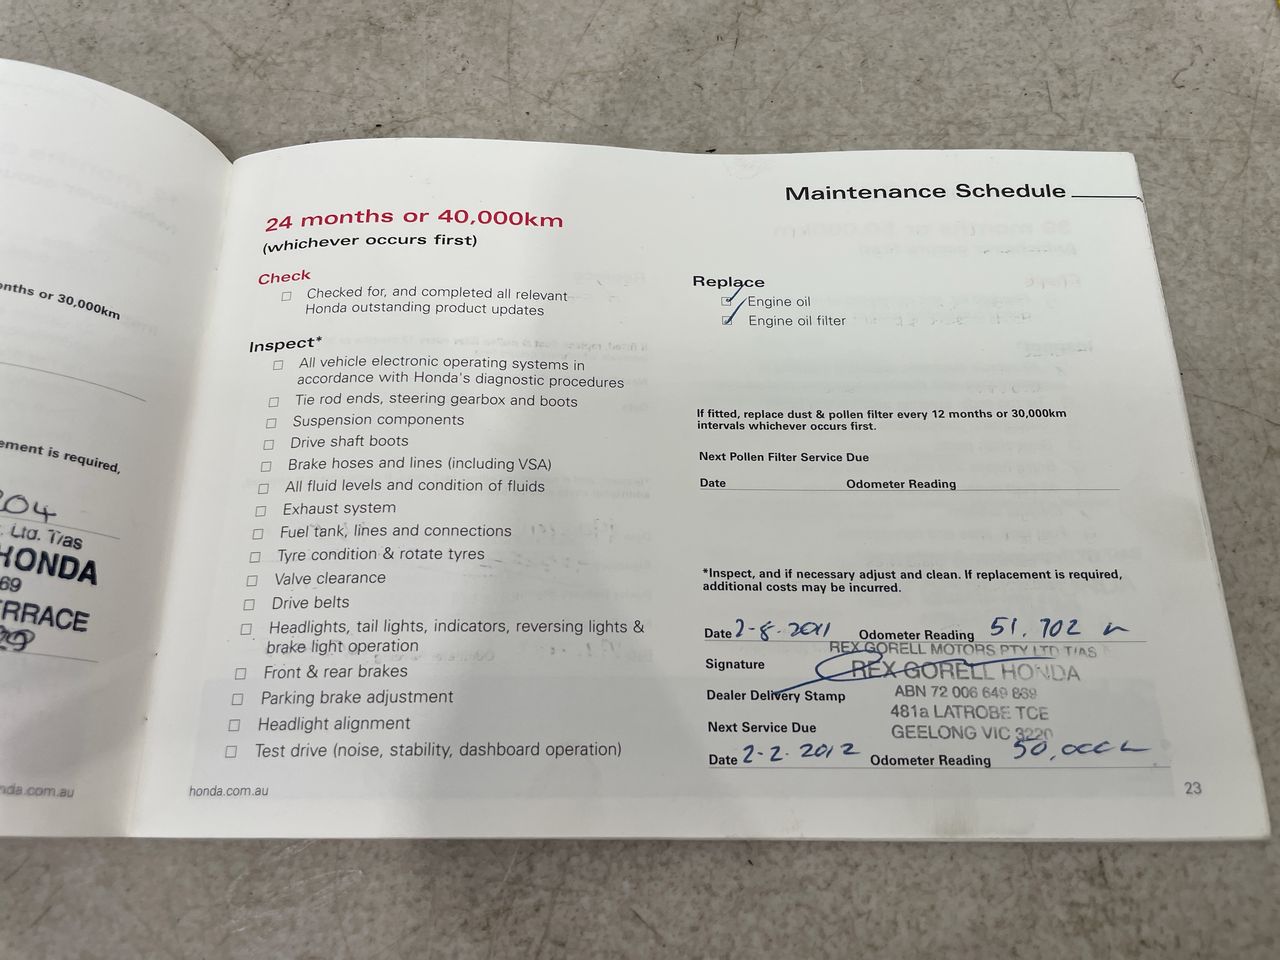 onths or 30,000km
ement is required,
204
. Ltd. T/as
HONDA
69
ERRACE
nda.com.au
Maintenance Schedule
24 months or 40,000km
(whichever occurs first)
Check
Checked for, and completed all relevant
Honda outstanding product updates
Inspect*
All vehicle electronic operating systems in
accordance with Honda's diagnostic procedures
Tie rod ends, steering gearbox and boots
Suspension components
Drive shaft boots
Brake hoses and lines (including VSA)
All fluid levels and condition of fluids
Exhaust system
Fuel tank, lines and connections
Tyre condition & rotate tyres
Valve clearance
Drive belts
Headlights, tail lights, indicators, reversing lights &
brake light operation
Front & rear brakes
Parking brake adjustment
Headlight alignment
Test drive (noise, stability, dashboard operation)
honda.com.au
Replace
Engine oil
Engine oil filter
If fitted, replace dust & pollen filter every 12 months or 30,000km
intervals whichever occurs first.
Next Pollen Filter Service Due
Date Odometer Reading
*Inspect, and if necessary adjust and clean. If replacement is required,
additional costs may be incurred.
Date 2-8-2011 Odometer Reading 51,702
REX GORELL MOTORS PTY LTD T/AS
Signature REX GORELL HONDA
Dealer Delivery Stamp ABN 72 006 649 869
481a LATROBE TCE
Next Service Due GEELONG VIC 3220
Date 2-2-2012 Odometer Reading
23